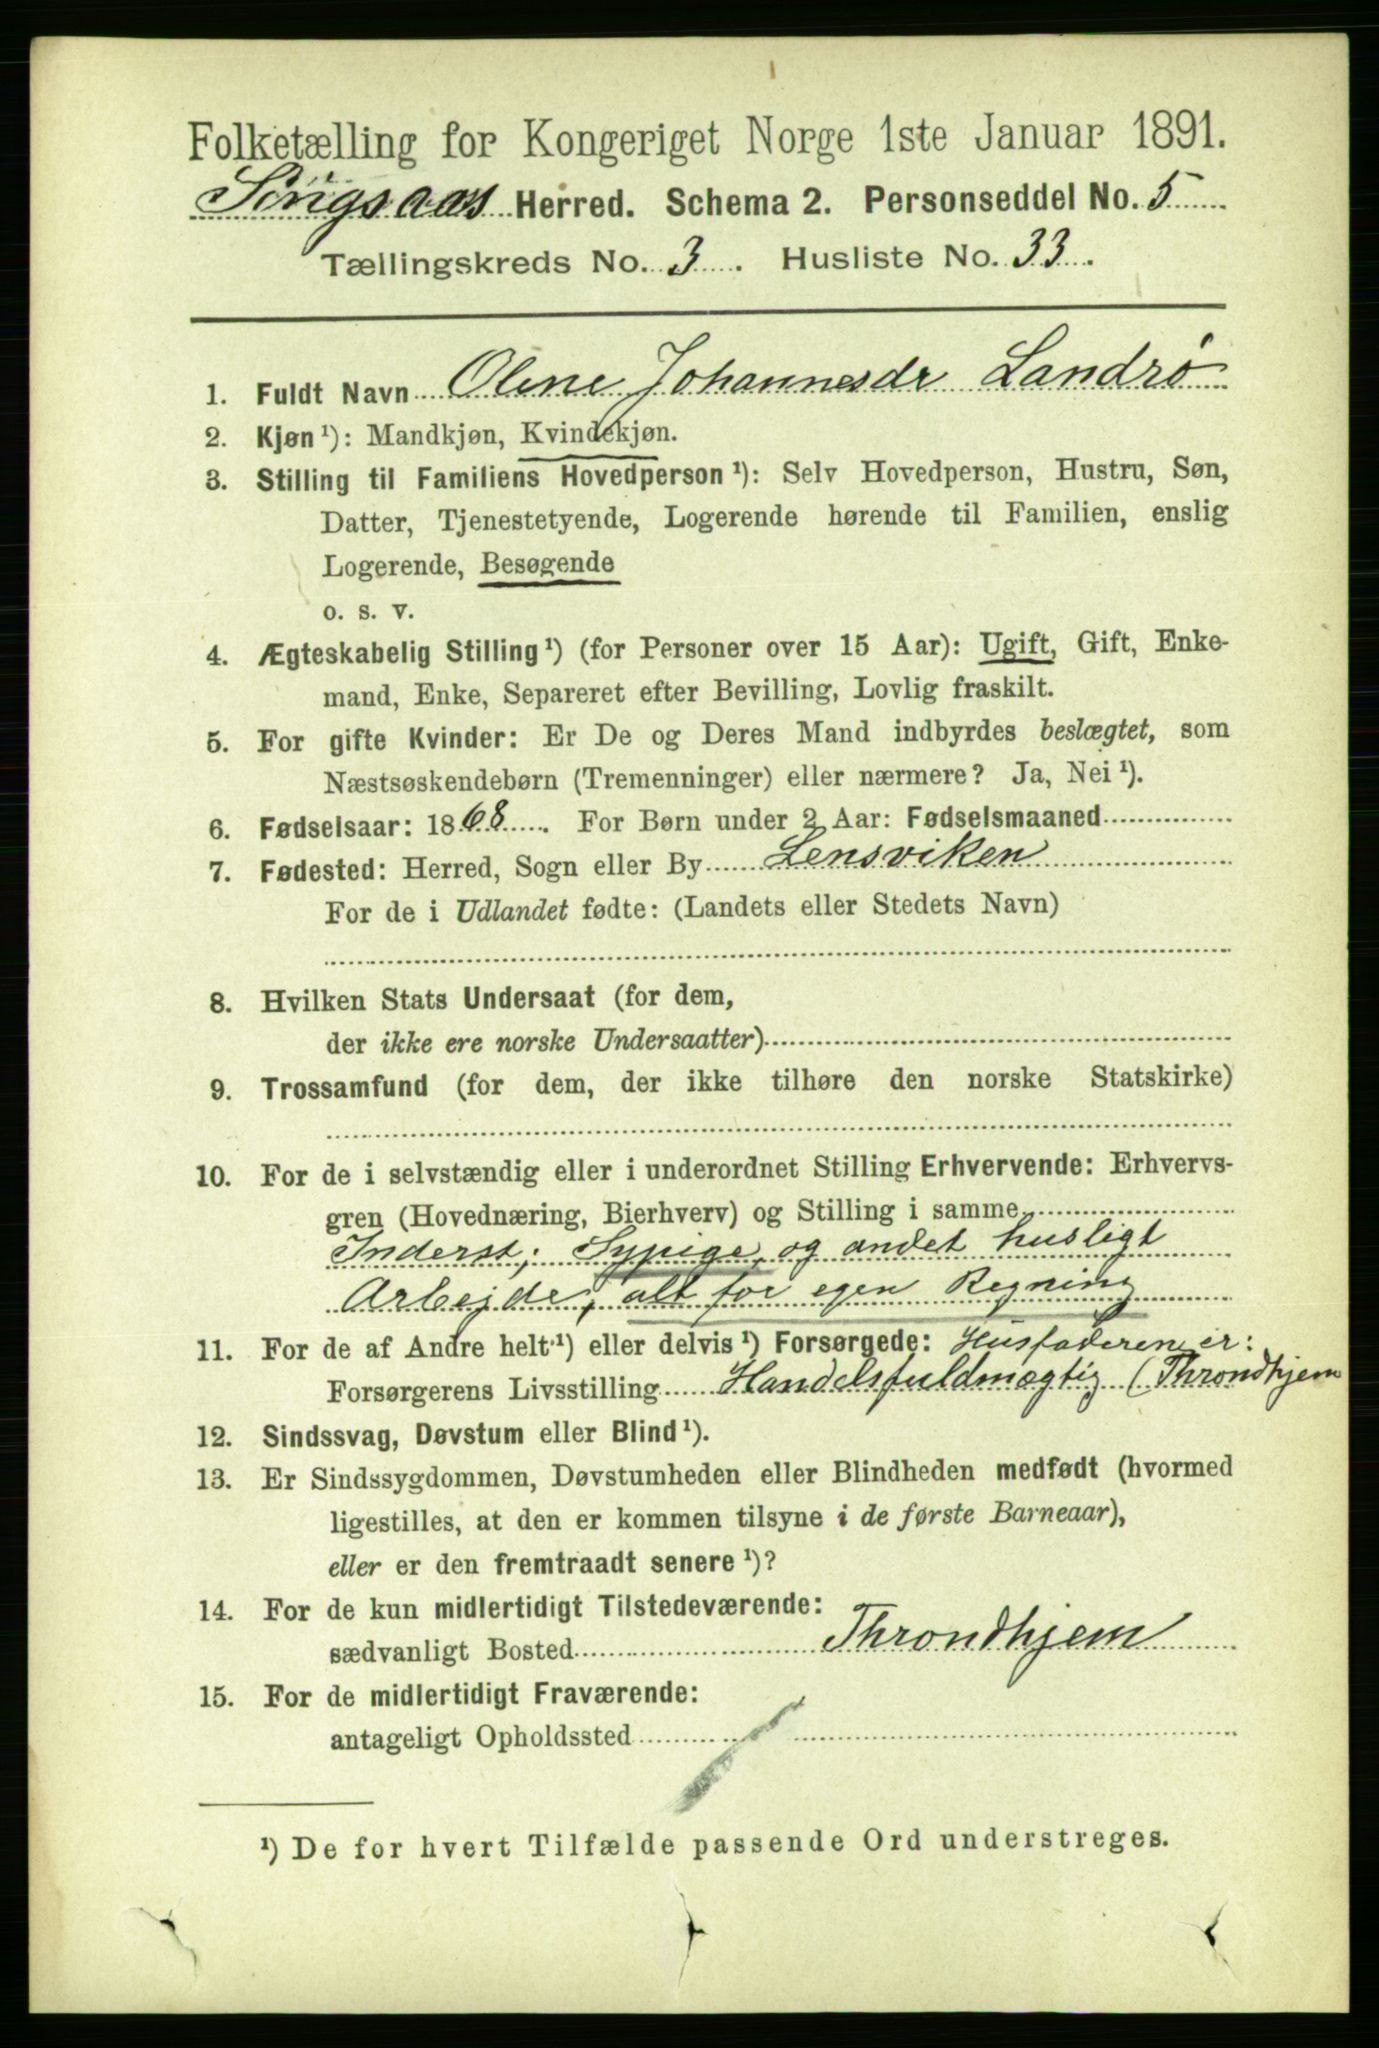 Folketælling for Kongeriget Norge 1ste Januar 1891.
Singsaas Herred. Schema 2. Personseddel No. 5
Tællingskreds No. 3. Husliste No. 33.
1. Fuldt Navn Oline Johannesdr Landrø
2. Kjøn ¹): Mandkjøn, Kvindekjøn.
3. Stilling til Familiens Hovedperson ¹): Selv Hovedperson, Hustru, Søn,
Datter, Tjenestetyende, Logerende hørende til Familien, enslig
Logerende, Besøgende
o. s. v.
4. Ægteskabelig Stilling ¹) (for Personer over 15 Aar): Ugift, Gift, Enke-
mand, Enke, Separeret efter Bevilling, Lovlig fraskilt.
5. For gifte Kvinder: Er De og Deres Mand indbyrdes beslægtet, som
Næstsøskendebørn (Tremenninger) eller nærmere? Ja, Nei ¹).
6. Fødselsaar: 1868. For Børn under 2 Aar: Fødselsmaaned
7. Fødested: Herred, Sogn eller By Lensviken
For de i Udlandet fødte: (Landets eller Stedets Navn)
8. Hvilken Stats Undersaat (for dem,
der ikke ere norske Undersaatter)
9. Trossamfund (for dem, der ikke tilhøre den norske Statskirke)
10. For de i selvstændig eller i underordnet Stilling Erhvervende: Erhvervs-
gren (Hovednæring, Bierhverv) og Stilling i samme
Inderst; Sypige, og andet husligt
Arbejde, alt for egen Regning
11. For de af Andre helt ¹) eller delvis ¹) Forsørgede: Husfaderen er:
Forsørgerens Livsstilling Handelsfuldmægtig (Throndhjem
12. Sindssvag, Døvstum eller Blind ¹).
13. Er Sindssygdommen, Døvstumheden eller Blindheden medfødt (hvormed
ligestilles, at den er kommen tilsyne i de første Barneaar),
eller er den fremtraadt senere ¹)?
14. For de kun midlertidigt Tilstedeværende:
sædvanligt Bosted Throndhjem
15. For de midlertidigt Fraværende:
antageligt Opholdssted
¹) De for hvert Tilfælde passende Ord understreges.